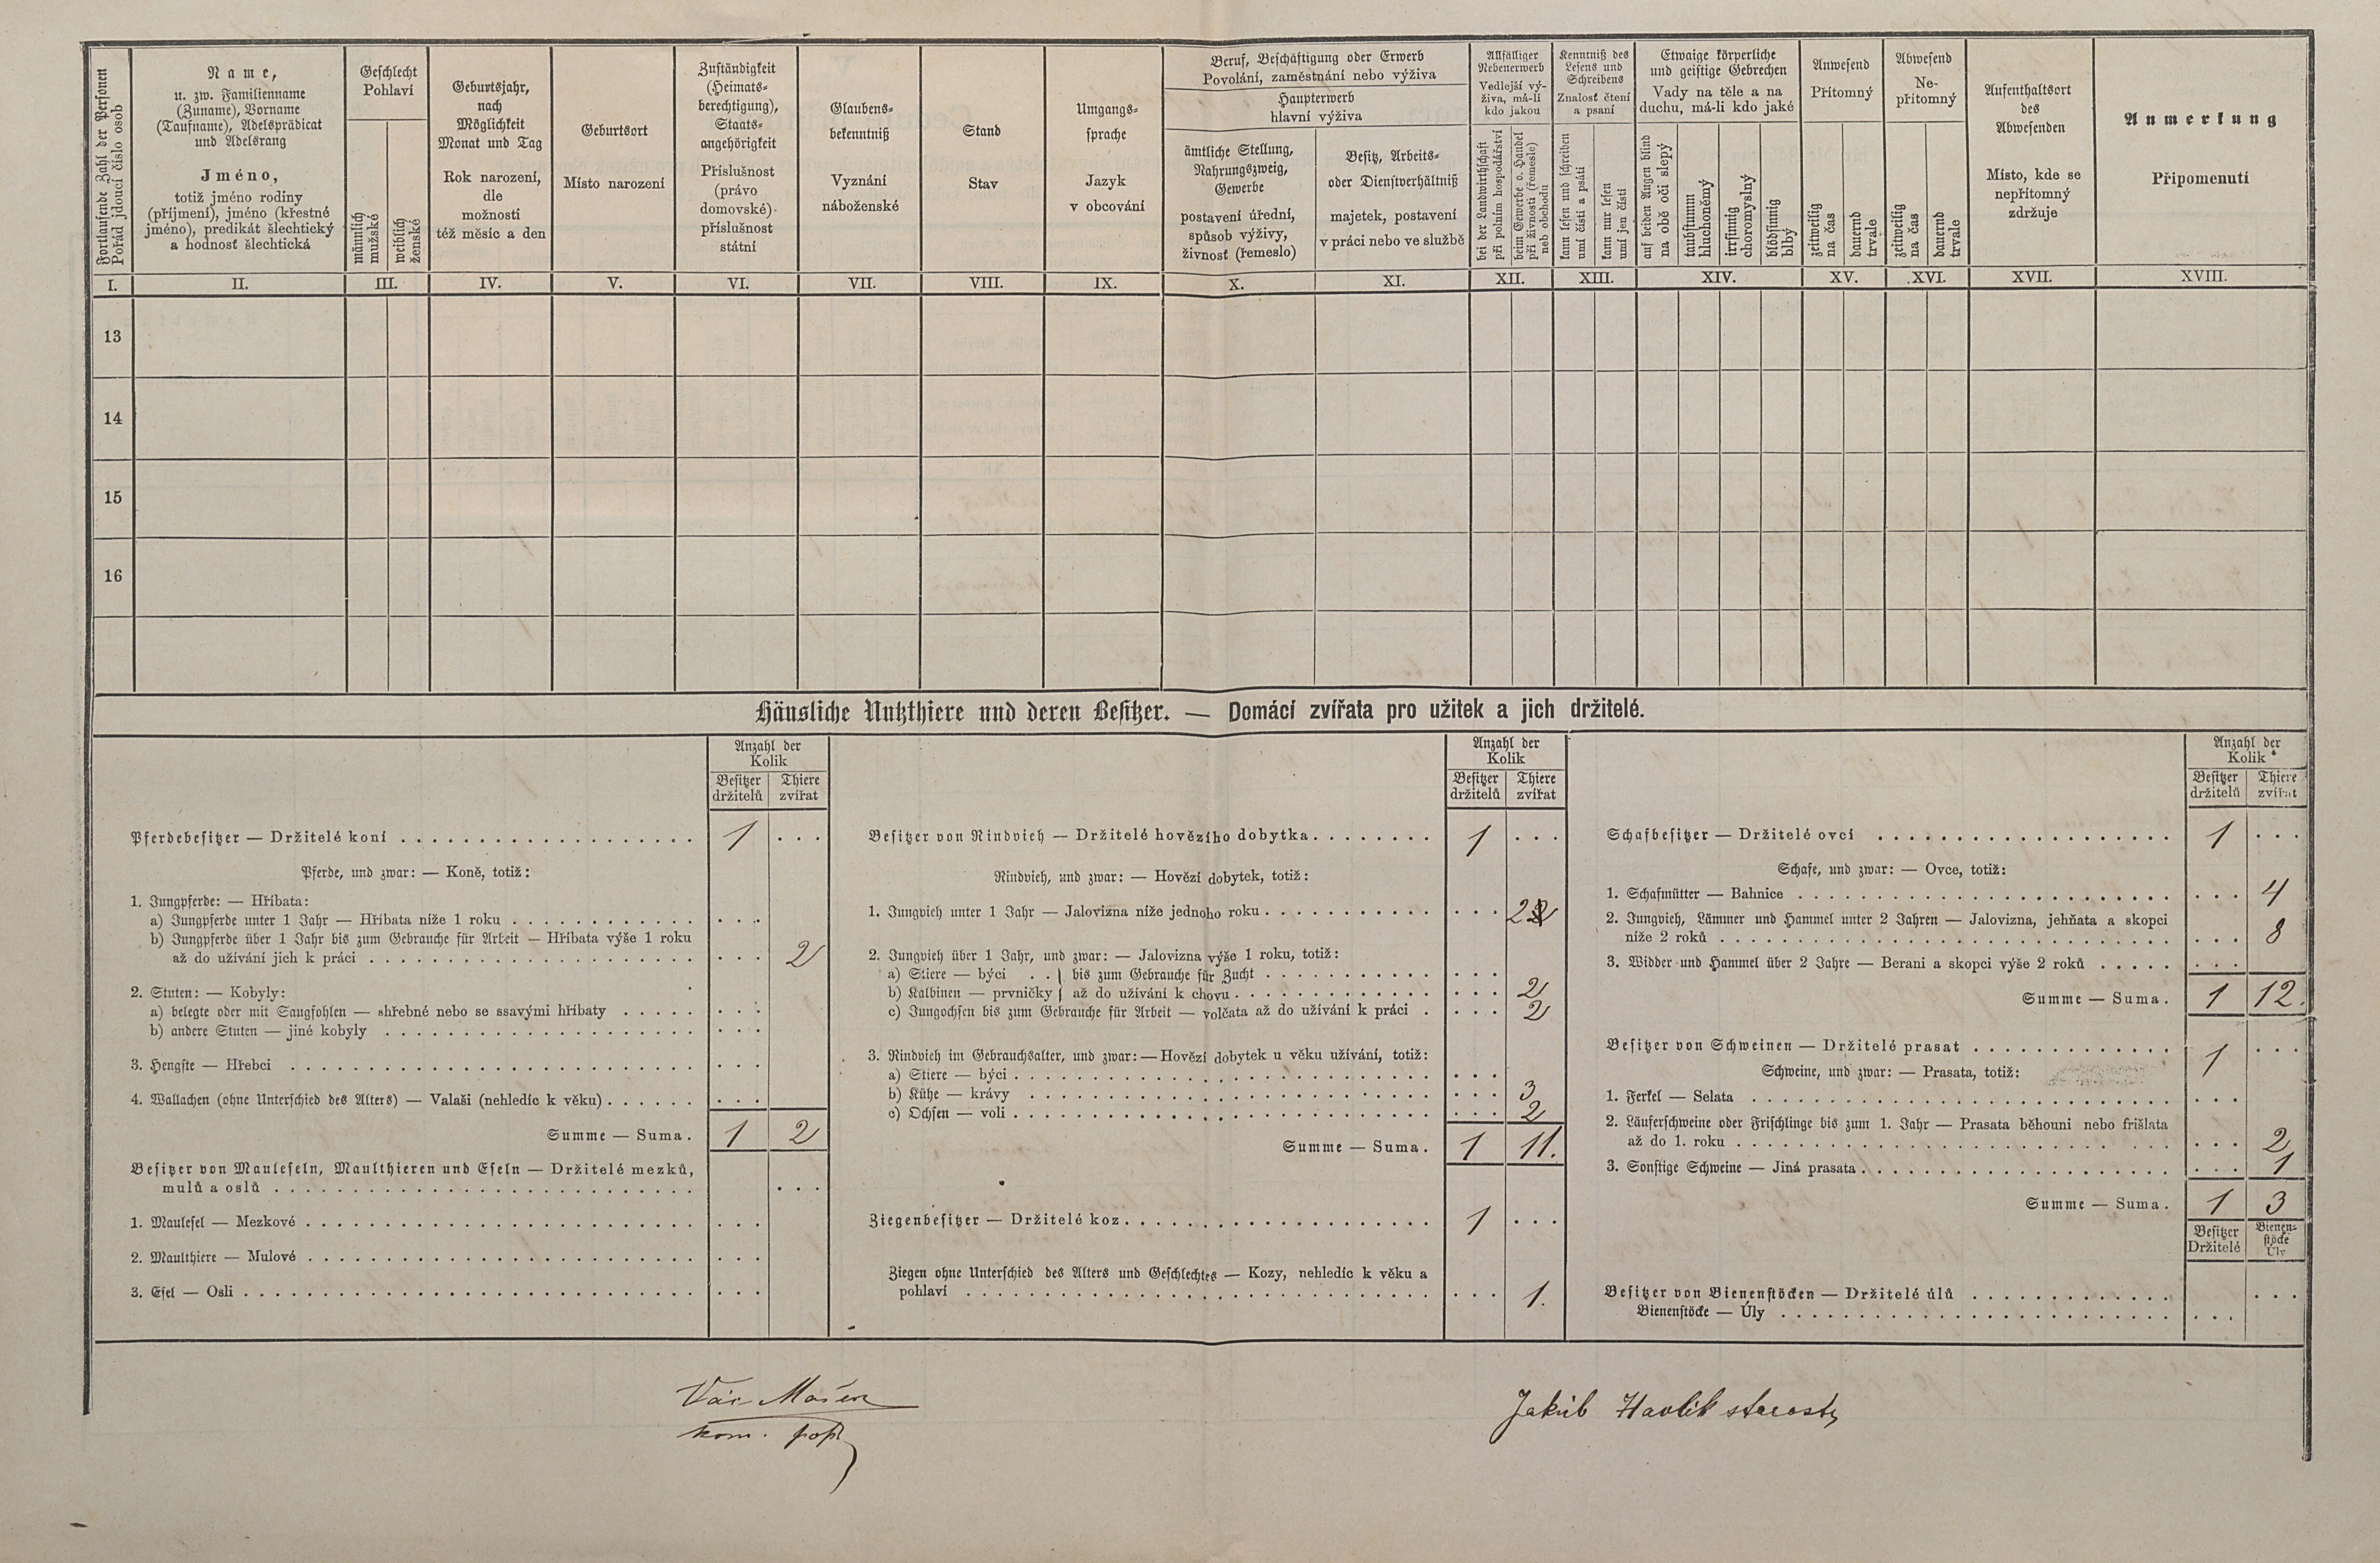 Fortlaufende Zahl der Personen
Pořád jdoucí číslo osob
Name,
u. zw. Familienname
(Zuname), Vorname
(Taufname), Adelsprädicat
und Adelsrang
Jméno,
totiž jméno rodiny
(příjmení), jméno (křestné
jméno), predikát šlechtický
a hodnosť šlechtická
Geschlecht
Pohlaví
männlich
mužské
weiblich
ženské
Geburtsjahr,
nach
Möglichkeit
Monat und Tag
Rok narození,
dle
možnosti
též měsíc a den
Geburtsort
Místo narození
Zuständigkeit
(Heimats-
berechtigung),
Staats-
angehörigkeit
Příslušnost
(právo
domovské)
příslušnost
státní
Glaubens-
bekenntniß
Vyznání
náboženské
Stand
Stav
Umgangs-
sprache
Jazyk
v obcování
Beruf, Beschäftigung oder Erwerb
Povolání, zaměstnání nebo výživa
Haupterwerb
hlavní výživa
ämtliche Stellung,
Nahrungszweig,
Gewerbe
postavení úřední,
spůsob výživy,
živnosť (řemeslo)
Besitz, Arbeits-
oder Dienstverhältniß
majetek, postavení
v práci nebo ve službě
Allfälliger
Nebenerwerb
Vedlejší vý-
živa, má-li
kdo jakou
bei der Landwirthschaft
při polním hospodářství
beim Gewerbe o. Handel
při živnosti (řemesle)
neb obchodu
Kenntniß des
Lesens und
Schreibens
Znalosť čtení
a psaní
kann lesen und schreiben
umí čísti a psáti
kann nur lesen
umí jen čísti
Etwaige körperliche
und geistige Gebrechen
Vady na těle a na
duchu, má-li kdo jaké
auf beiden Augen blind
na obě oči slepý
taubstumm
hluchoněmý
irrsinnig
choromyslný
blödsinnig
blbý
Anwesend
Přítomný
zeitweilig
na čas
dauernd
trvale
Abwesend
Ne-
přítomný
zeitweilig
na čas
dauernd
trvale
Aufenthaltsort
des
Abwesenden
Místo, kde se
nepřítomný
zdržuje
Anmerkung
Připomenutí
I. II. III. IV. V. VI. VII. VIII. IX. X. XI. XII. XIII. XIV. XV. XVI. XVII. XVIII.
13
14
15
16
Häusliche Nutzthiere und deren Besitzer. — Domácí zvířata pro užitek a jich držitelé.
Anzahl der
Kolik
Besitzer Thiere
držitelů zvířat
Pferdebesitzer — Držitelé koní 1
Pferde, und zwar: — Koně, totiž:
1. Jungpferde: — Hříbata:
a) Jungpferde unter 1 Jahr — Hříbata níže 1 roku
b) Jungpferde über 1 Jahr bis zum Gebrauche für Arbeit — Hříbata výše 1 roku
až do užívání jich k práci 2
2. Stuten: — Kobyly:
a) belegte oder mit Saugfohlen — shřebné nebo se ssavými hříbaty
b) andere Stuten — jiné kobyly
3. Hengste — Hřebci
4. Wallachen (ohne Unterschied des Alters) — Valaši (nehledíc k věku)
Summe — Suma. 1 2
Besitzer von Mauleseln, Maulthieren und Eseln — Držitelé mezků,
mulů a oslů
1. Maulesel — Mezkové
2. Maulthiere — Mulové
3. Esel — Osli
Anzahl der
Kolik
Besitzer Thiere
držitelů zvířat
Besitzer von Rindvieh — Držitelé hovězího dobytka 1
Rindvieh, und zwar: — Hovězí dobytek, totiž:
1. Jungvieh unter 1 Jahr — Jalovizna níže jednoho roku 2
2. Jungvieh über 1 Jahr, und zwar: — Jalovizna výše 1 roku, totiž:
a) Stiere — býci } bis zum Gebrauche für Zucht
b) Kalbinen — prvničky } až do užívání k chovu 2
c) Jungochsen bis zum Gebrauche für Arbeit — volčata až do užívání k práci 2
3. Rindvieh im Gebrauchsalter, und zwar: — Hovězí dobytek u věku užívání, totiž:
a) Stiere — býci
b) Kühe — krávy 3
c) Ochsen — voli 2
Summe — Suma. 1 11.
Ziegenbesitzer — Držitelé koz 1
Ziegen ohne Unterschied des Alters und Geschlechtes — Kozy, nehledíc k věku a
pohlaví 1.
Anzahl der
Kolik
Besitzer Thiere
držitelů zvířat
Schafbesitzer — Držitelé ovcí 1
Schafe, und zwar: — Ovce, totiž:
1. Schafmütter — Bahnice 4
2. Jungvieh, Lämmer und Hammel unter 2 Jahren — Jalovizna, jehňata a skopci
níže 2 roků 8
3. Widder und Hammel über 2 Jahre — Berani a skopci výše 2 roků
Summe — Suma. 1 12.
Besitzer von Schweinen — Držitelé prasat 1
Schweine, und zwar: — Prasata, totiž:
1. Ferkel — Selata
2. Läuferschweine oder Frischlinge bis zum 1. Jahr — Prasata běhouni nebo frišlata
až do 1. roku 2
3. Sonstige Schweine — Jiná prasata 1
Summe — Suma. 1 3
Besitzer
Držitelé
Bienen-
stöcke
Úly
Besitzer von Bienenstöcken — Držitelé úlů
Bienenstöcke — Úly
kom.
Jakub Havlík starosta